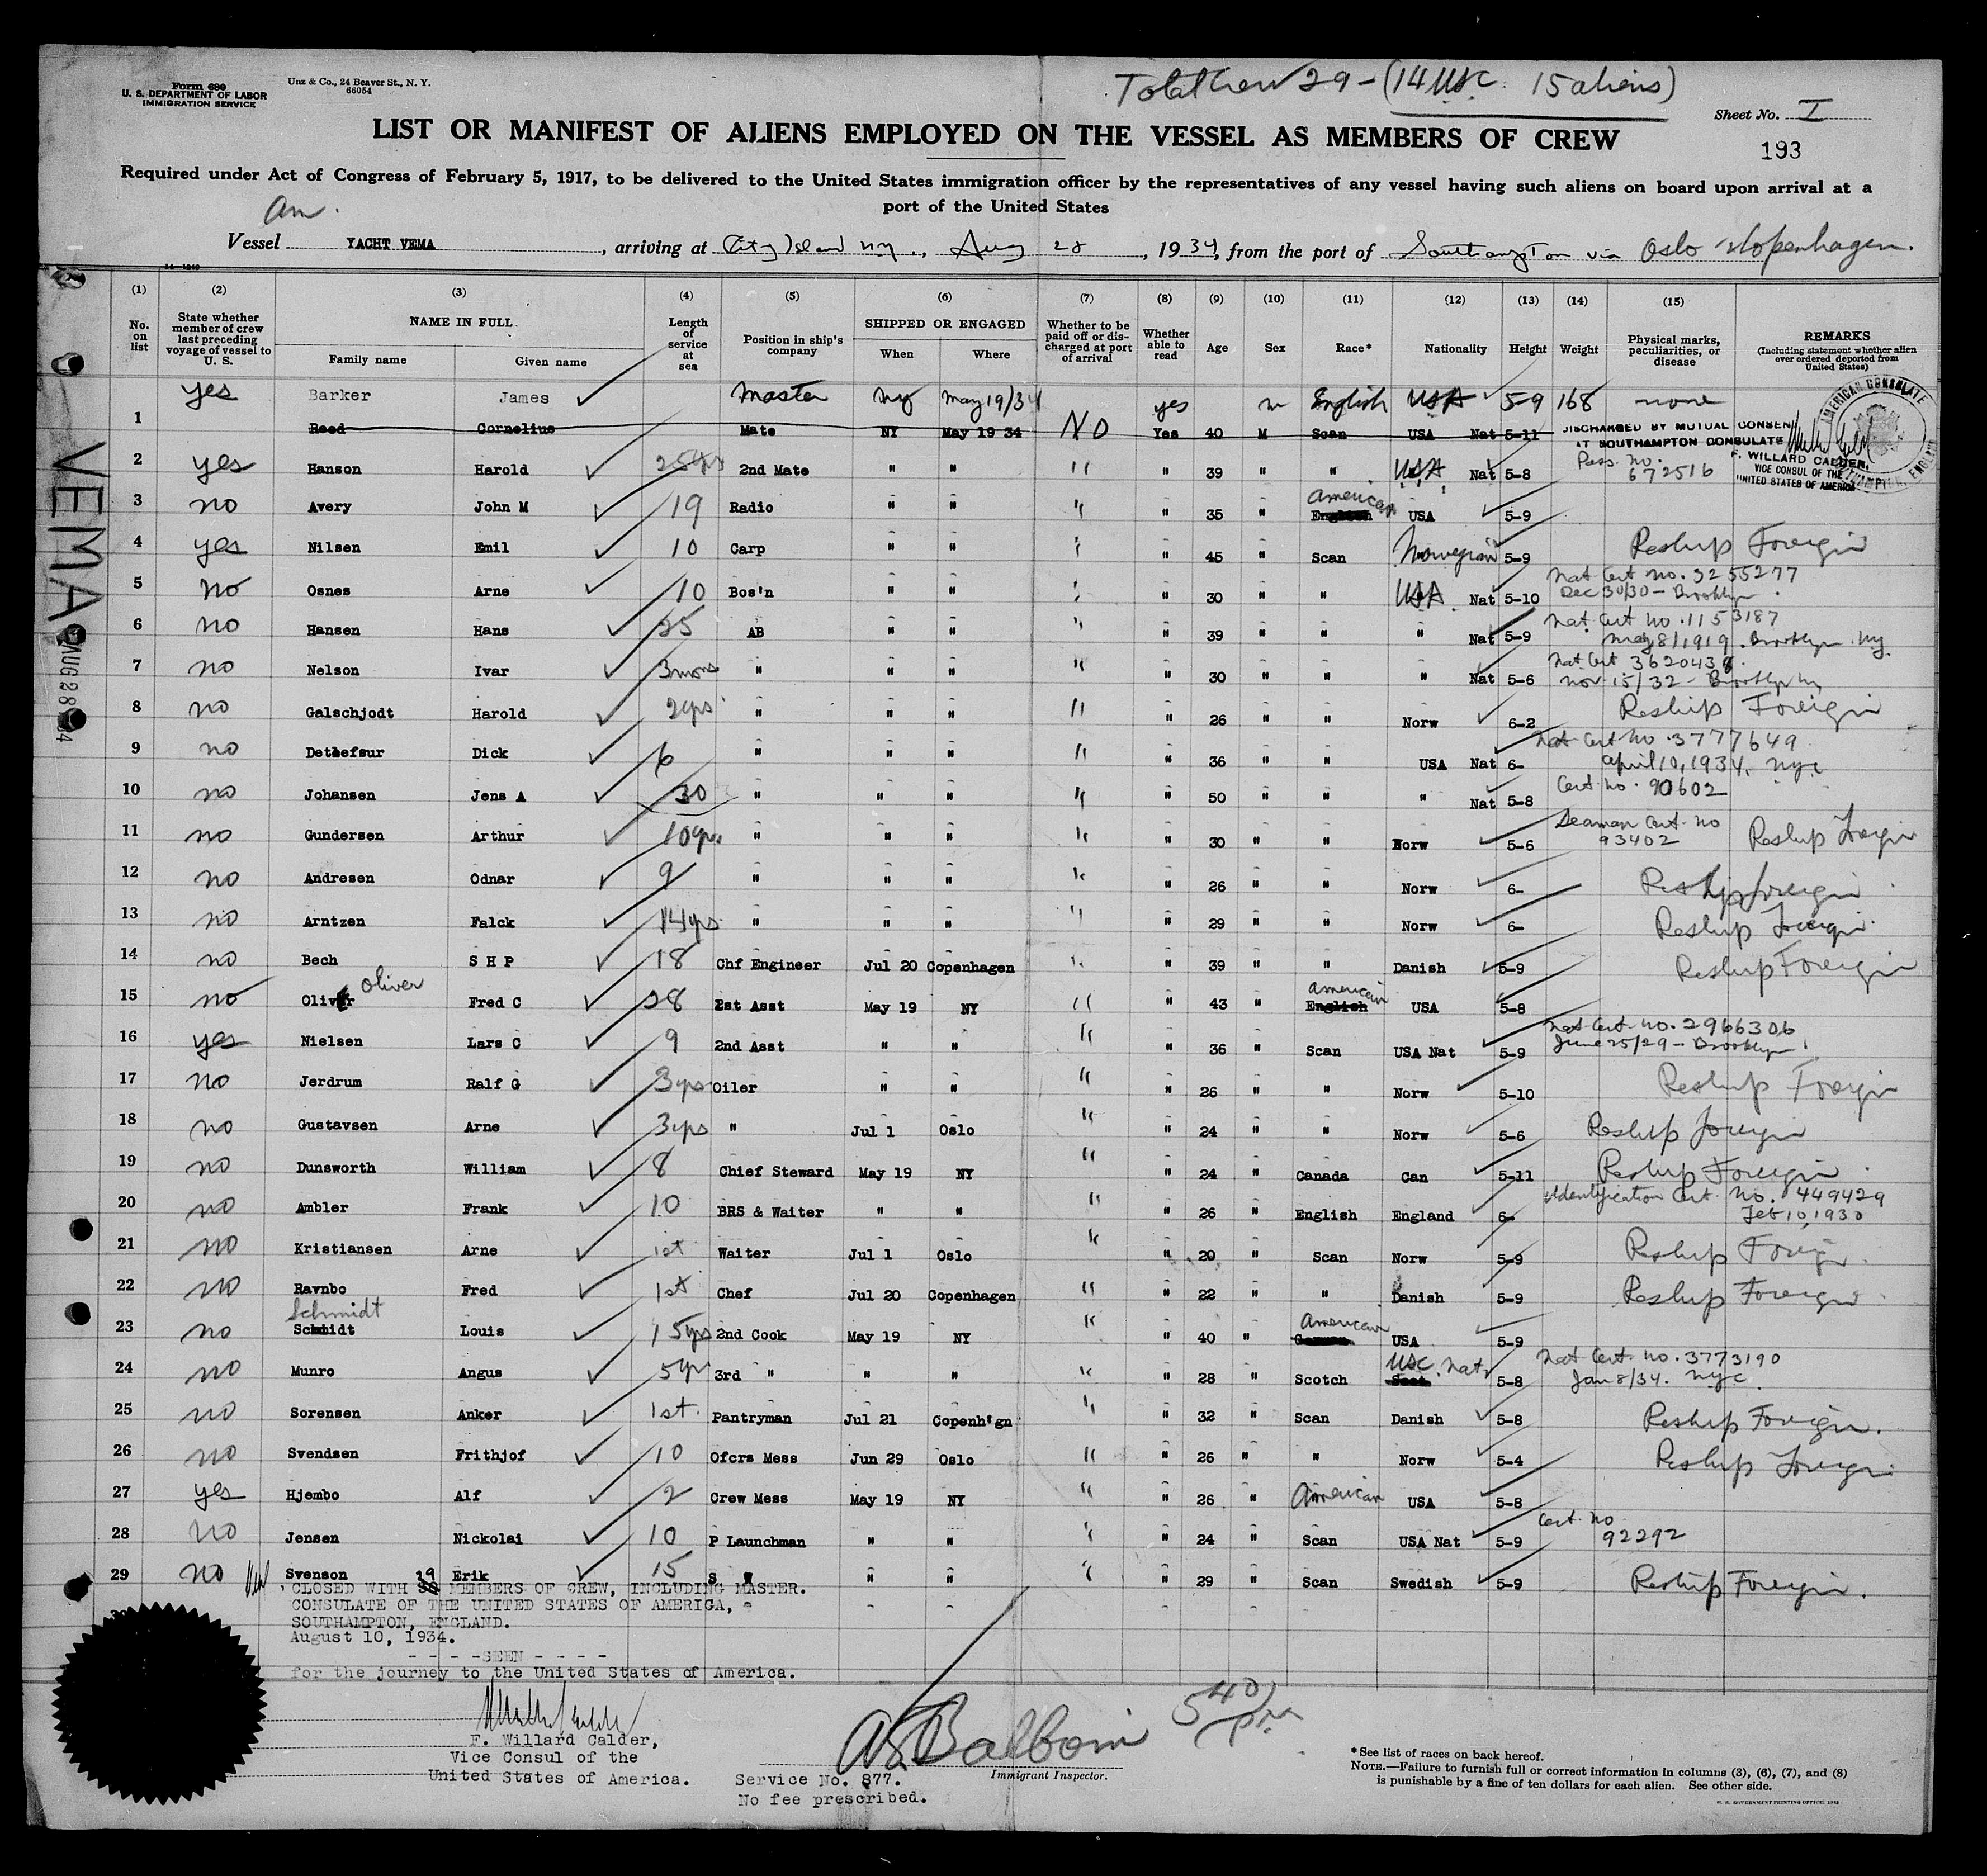 Form 680
U. S. DEPARTMENT OF LABOR
IMMIGRATION SERVICE
Unz & Co., 24 Beaver St., N. Y.
66054
Total Crew 29 - (14 USC. 15 aliens)
Sheet No. I
193
LIST OR MANIFEST OF ALIENS EMPLOYED ON THE VESSEL AS MEMBERS OF CREW
Required under Act of Congress of February 5, 1917, to be delivered to the United States immigration officer by the representatives of any vessel having such aliens on board upon arrival at a
port of the United States
Am.
Vessel YACHT VEMA, arriving at City Island NY., Aug 28, 1934, from the port of Southampton via Oslo Kopenhagen.
14-1240
(1) (2) (3) (4) (5) (6) (7) (8) (9) (10) (11) (12) (13) (14) (15)
No. on list
State whether member of crew last preceding voyage of vessel to U. S.
NAME IN FULL
Family name Given name
Length of service at sea
Position in ship's company
SHIPPED OR ENGAGED
When Where
Whether to be paid off or discharged at port of arrival
Whether able to read
Age
Sex
Race*
Nationality
Height
Weight
Physical marks, peculiarities, or disease
REMARKS
(Including statement whether alien ever ordered deported from United States)
yes Barker James Master NY May 19/34 yes m English USA 5-9 168 none
1 Reed Cornelius Mate NY May 19 34 NO Yes 40 M Scan USA Nat 5-11 DISCHARGED BY MUTUAL CONSENT
AT SOUTHAMPTON CONSULATE
F. WILLARD CALDER,
VICE CONSUL OF THE
UNITED STATES OF AMERICA
AMERICAN CONSULATE
2 yes Hanson Harold 25yrs 2nd Mate " " " " 39 " " USA Nat 5-8 Pass. no. 672516
3 no Avery John M 19 Radio " " " " 35 " American English USA 5-9
4 yes Nilsen Emil 10 Carp " " " " 45 " Scan Norwegian 5-9 Reship Foreign
5 no Osnes Arne 10 Bos'n " " " " 30 " " USA Nat 5-10 Nat Cert no. 3255277
Dec 30/30 - Brooklyn
6 no Hansen Hans 25 AB " " " " 39 " " " Nat 5-9 Nat. Cert no. 1153187
May 8/1919. Brooklyn Ny.
7 no Nelson Ivar 3mons " " " " " 30 " " " Nat 5-6 Nat Cert 3620438.
Nov. 15/32 - Brooklyn Ny
8 no Galschjodt Harold 2yrs " " " " " 26 " " Norw 6-2 Reship Foreign
9 no Dethefsur Dick 6 " " " " " 36 " " USA Nat 6- Nat Cert No. 3777649
April 10, 1934. nyc
10 no Johansen Jens A 30 " " " " " 50 " " " Nat 5-8 Cert. no. 90602
11 no Gundersen Arthur 10yrs. " " " " " 30 " " Norw 5-6 Seaman Cert. no 93402 Reship Foreign
12 no Andresen Odnar 9 " " " " " 26 " " Norw 6- Reship foreign
13 no Arntzen Falck 14yrs " " " " " 29 " " Norw 6- Reship Foreign.
14 no Bech S H P 18 Chf Engineer Jul 20 Copenhagen " " 39 " " Danish 5-9 Reship Foreign
15 no Oliver Oliver Fred C 28 1st Asst May 19 NY " " 43 " American English USA 5-8
16 yes Nielsen Lars C 9 2nd Asst " " " " 36 " Scan USA Nat 5-9 Nat Cert. no. 2966306
June 25/29 - Brooklyn
17 no Jerdrum Ralf G 3yrs Oiler " " " " 26 " " Norw 5-10 Reship Foreign
18 no Gustavsen Arne 3yrs " Jul 1 Oslo " " 24 " " Norw 5-6 Reship Foreign
19 no Dunsworth William 8 Chief Steward May 19 NY " " 24 " Canada Can 5-11 Reship Foreign
20 no Ambler Frank 10 BRS & Waiter " " " " 26 " English England 6- Identification Cert. No. 449429
Feb 10, 1930
21 no Kristiansen Arne 1st Waiter Jul 1 Oslo " " 20 " Scan Norw 5-9 Reship Foreign
22 no Ravnbo Fred 1st Chef Jul 20 Copenhagen " " 22 " " Danish 5-9 Reship Foreign
Schmidt
23 no Schmidt Louis 15yrs 2nd Cook May 19 NY " " 40 " American German USA 5-9
24 no Munro Angus 5yr 3rd " " " " " 28 " Scotch USC. Nat. Scot. 5-8 Nat. Cert. no. 3773190
Jan 8/34. Nyc.
25 no Sorensen Anker 1st. Pantryman Jul 21 Copenh'gn " " 32 " Scan Danish 5-8 Reship Foreign.
26 no Svendsen Frithjof 10 Ofcrs Mess Jun 29 Oslo " " 26 " " Norw 5-4 Reship Foreign
27 yes Hjembo Alf 2 Crew Mess May 19 NY " " 26 " American USA 5-8
28 no Jensen Nickolai 10 P Launchman " " " " 24 " Scan USA Nat 5-9 Cert. no 92292
29 no Svenson Erik 15 S " " " " " 29 " Scan Swedish 5-9 Reship Foreign.
CLOSED WITH 29 30 MEMBERS OF CREW, INCLUDING MASTER.
CONSULATE OF THE UNITED STATES OF AMERICA,
SOUTHAMPTON, ENGLAND.
August 10, 1934.
- - - -SEEN - - - -
for the journey to the United States of America.
F. Willard Calder,
Vice Consul of the
United States of America.
Service No. 877.
No fee prescribed.
Immigrant Inspector.
5 40 pm
*See list of races on back hereof.
NOTE.—Failure to furnish full or correct information in columns (3), (6), (7), and (8)
is punishable by a fine of ten dollars for each alien. See other side.
VEMA
AUG 28 '34